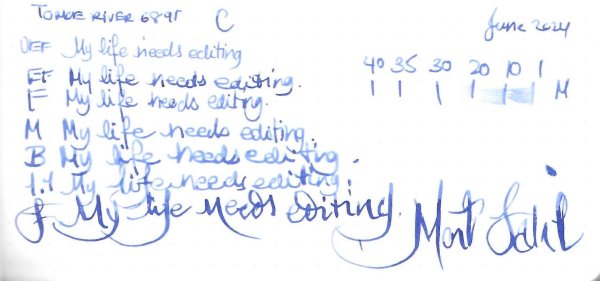 TOMOE RIVER 68gr C June 2024
OEF My life needs editing
EF My life needs editing.
F My life needs editing.
M My life needs editing.
B My life needs editing.
1.1 My life needs editing.
f My life needs editing. Mort Sahl
40 35 30 20 10 1
M